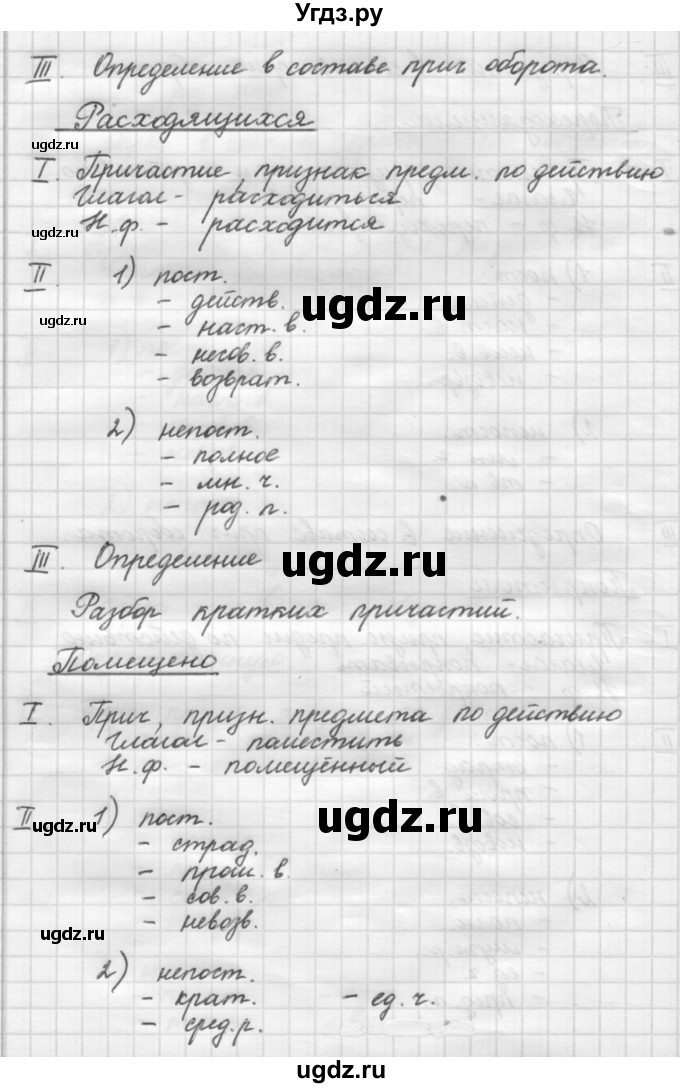 Угдз.ру
III. Определение в составе прич оборота.
Расходящихся
I. Причастие, признак предм. по действию
Глагол - расходиться
Н.ф. - расходится
II. 1) пост.
- действ.
- наст. в.
- несов. в.
- возврат.
2) непост.
- полное
- мн. ч.
- род. п.
III. Определение
Разбор кратких причастий.
Помещено
I. Прич, призн. предмета по действию
Глагол - поместить
Н.ф. - помещённый
II 1) пост.
- страд.
- прош. в.
- сов. в.
- невозв.
2) непост.
- крат. - ед. ч.
- сред. р.
ugdz.ru
ugdz.ru
ugdz.ru
ugdz.ru
ugdz.ru
ugdz.ru
ugdz.ru
ugdz.ru
ugdz.ru
ugdz.ru